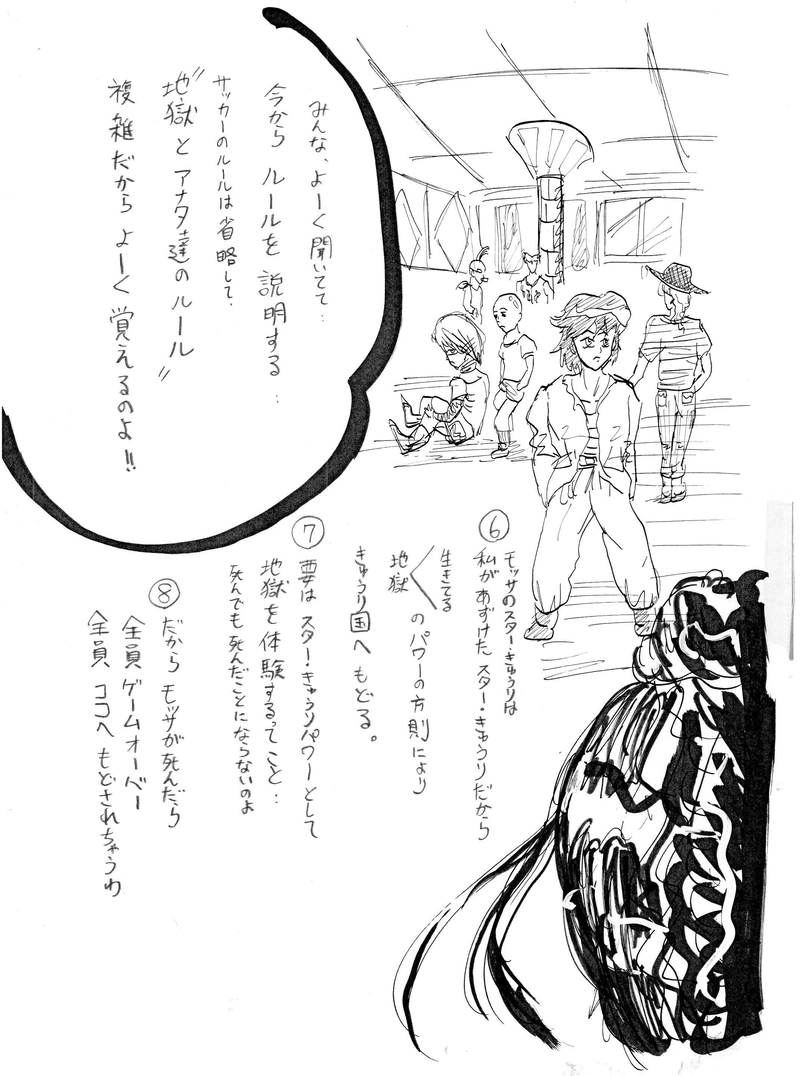 みんな、よーく聞いてて‥
今から ルールを 説明する‥
サッカーのルールは省略して、
〝地獄とアナタ達のルール〟
複雑だから よーく 覚えるのよ!!
⑥ モッサのスター・きゅうりは
私があずけた スター・きゅうりだから
生きてる
地獄
のパワーの方則により
きゅうり国へ もどる。
⑦ 要は スター・きゅうりパワーとして
地獄を体験するってこと‥
死んでも死んだことにならないのよ
⑧ だから モッサが死んだら
全員 ゲームオーバー
全員 ココへ もどされちゃうわ